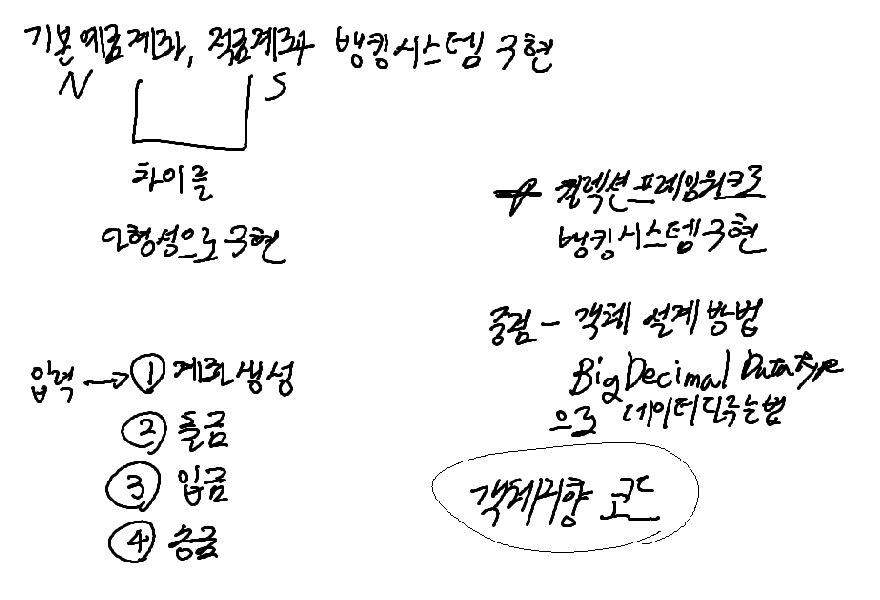 기본예금계좌, 적금계좌 뱅킹시스템 구현
N S
차이를
다형성으로 구현
컬렉션프레임워크로
뱅킹시스템구현
중점 - 객체 설계 방법
BigDecimal DataType
으로 데이터다루는법
입력 → ① 계좌생성
② 출금
③ 입금
④ 송금
객체지향 코드